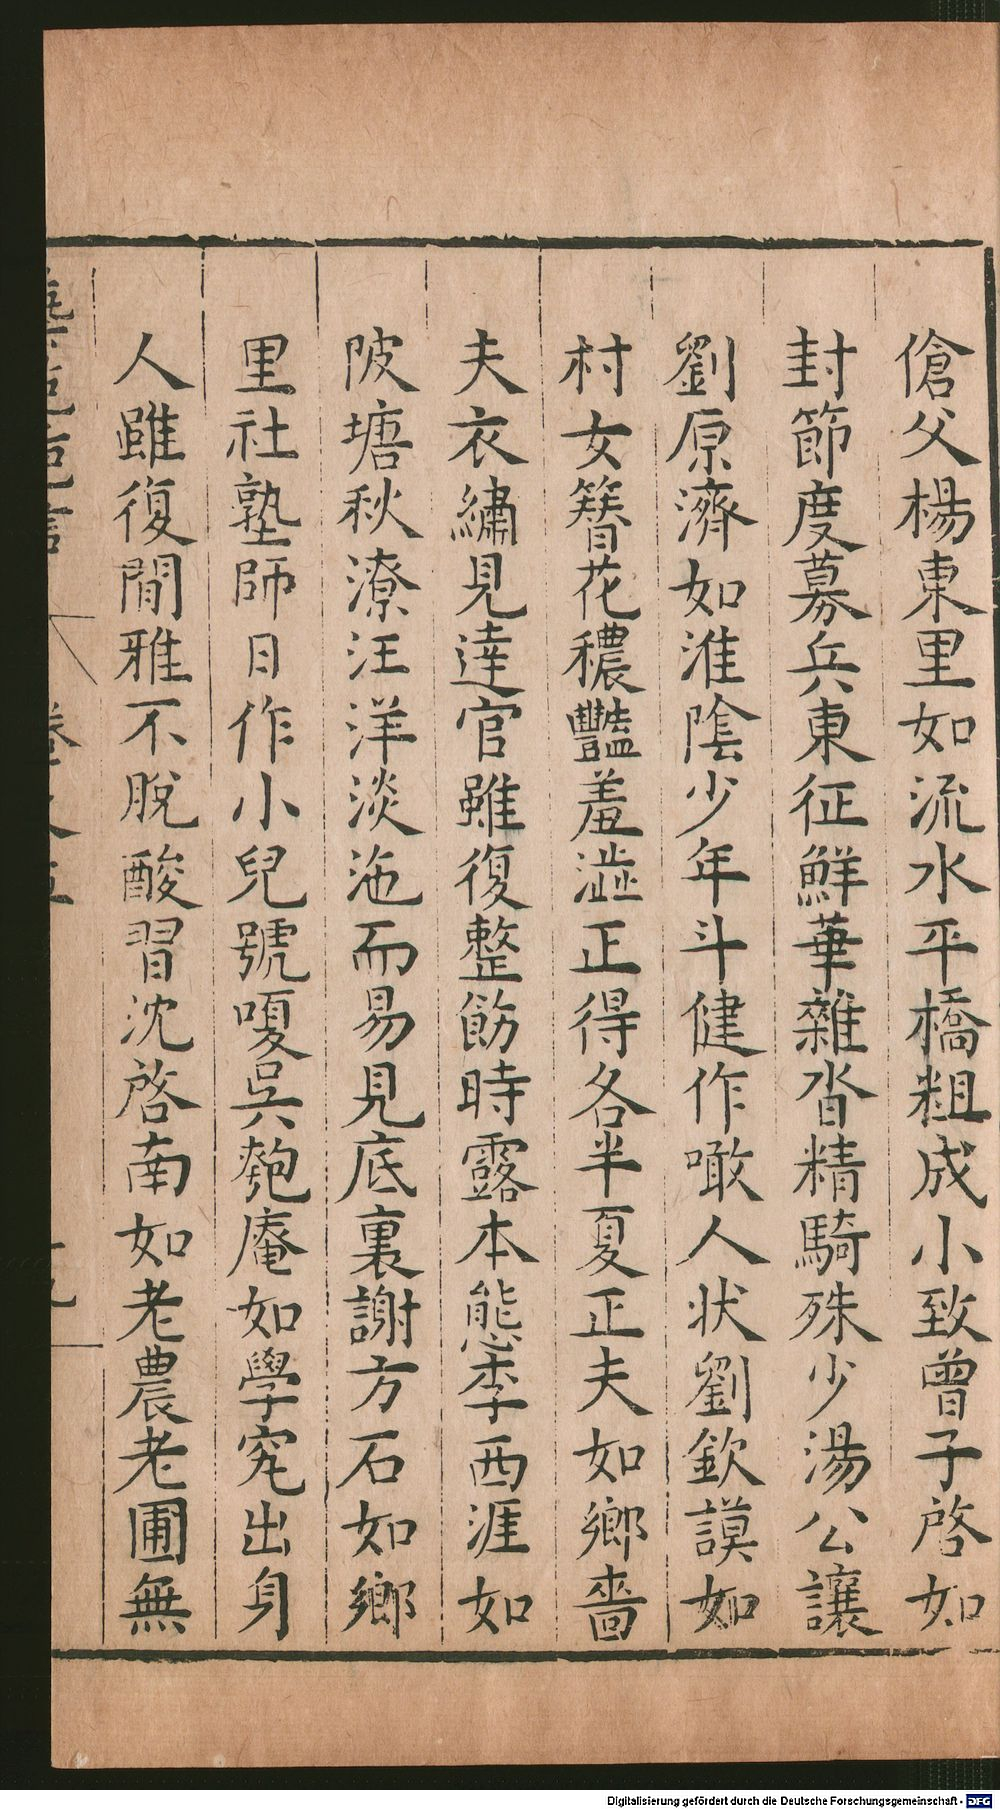 傖父楊東里如流水平橋粗成小致曾子啓如
封節度募兵東征鮮華雜沓精騎殊少湯公讓
劉原濟如淮陰少年斗健作噉人狀劉欽謨如
村女簪花穠豔羞澁正得各半夏正夫如鄉嗇
夫衣繡見達官雖復整飭時露本態李西涯如
陂塘秋潦汪洋淡沲而易見底裏謝方石如鄉
里社塾師日作小兒號嗄吳匏庵如學究出身
人雖復閒雅不脫酸習沈啓南如老農老圃無
卷之五
Digitalisierung gefördert durch die Deutsche Forschungsgemeinschaft - DFG